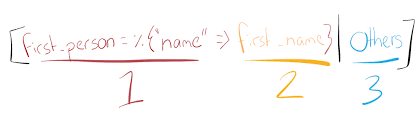 [first_person = %{"name" => first_name} | Others]
1 2 3